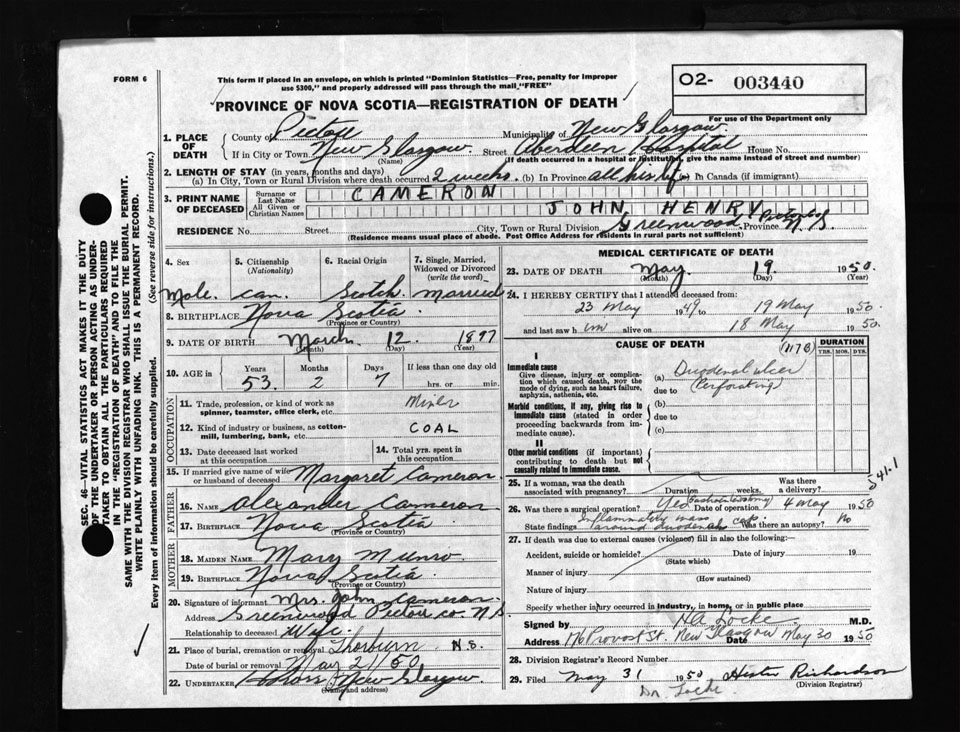 FORM 6
This form if placed in an envelope, on which is printed "Dominion Statistics—Free, penalty for improper
use $300," and properly addressed will pass through the mail "FREE"
O2- 003440
PROVINCE OF NOVA SCOTIA—REGISTRATION OF DEATH
For use of the Department only
1. PLACE OF DEATH
County of Pictou Municipality of New Glasgow
If in City or Town New Glasgow Street Aberdeen Hospital House No.
(Name) (If death occurred in a hospital or institution, give the name instead of street and number)
2. LENGTH OF STAY (in years, months and days)
(a) In City, Town or Rural Division where death occurred 2 weeks (b) In Province all his life (c) In Canada (if immigrant)
3. PRINT NAME OF DECEASED
Surname or Last Name CAMERON
All Given or Christian Names JOHN HENRY
RESIDENCE No. Street City, Town or Rural Division Greenwood Pictou Co Province N.S.
(Residence means usual place of abode. Post Office Address for residents in rural parts not sufficient)
4. Sex 5. Citizenship (Nationality) 6. Racial Origin 7. Single, Married, Widowed or Divorced (write the word)
Male. can. Scotch. married
8. BIRTHPLACE Nova Scotia
(Province or Country)
9. DATE OF BIRTH March 12 1897
(Month) (Day) (Year)
10. AGE in Years Months Days If less than one day old
53 2 7 hrs. or min.
OCCUPATION
11. Trade, profession, or kind of work as spinner, teamster, office clerk, etc. Miner
12. Kind of industry or business, as cotton-mill, lumbering, bank, etc. COAL
13. Date deceased last worked at this occupation 14. Total yrs. spent in this occupation
15. If married give name of wife or husband of deceased Margaret Cameron
FATHER
16. Name Alexander Cameron
17. Birthplace Nova Scotia
MOTHER
18. Maiden Name Mary Munro
19. Birthplace Nova Scotia
(Province or Country)
20. Signature of informant Mrs. John Cameron
Address Greenwood Pictou co. N.S
Relationship to deceased Wife
21. Place of burial, cremation or removal Thorburn N.S.
Date of burial or removal May 21/50
22. UNDERTAKER New Glasgow
(Name and address)
MEDICAL CERTIFICATE OF DEATH
23. DATE OF DEATH May 19 1950
(Month) (Day) (Year)
24. I HEREBY CERTIFY that I attended deceased from:
23 May 1949 to 19 May 1950
and last saw him alive on 18 May 1950.
CAUSE OF DEATH (117B) DURATION
YRS. MOS. DYS.
I
Immediate cause
Give disease, injury or complication which caused death, NOT the mode of dying, such as heart failure, asphyxia, asthenia, etc.
(a) Duodenal ulcer
due to Perforating
Morbid conditions, if any, giving rise to immediate cause (stated in order proceeding backwards from immediate cause).
(b)
due to
(c)
II
Other morbid conditions (if important) contributing to death but not causally related to immediate cause.
541.1
25. If a woman, was the death associated with pregnancy? Duration weeks. Was there a delivery?
26. Was there a surgical operation? Yes Date of operation 4 May 1950
State findings Inflammatory mass around duodenal cap Was there an autopsy? No
27. If death was due to external causes (violence) fill in also the following:—
Accident, suicide or homicide? Date of injury 19
(State which)
Manner of injury
(How sustained)
Nature of injury
Specify whether injury occurred in industry, in home, or in public place
Signed by HA Locke M.D.
Address Provost St. New Glasgow Date May 30 1950
28. Division Registrar's Record Number
29. Filed May 31 1950 Hester Richardson
(Division Registrar)
Dr Locke.
SEC. 46—VITAL STATISTICS ACT MAKES IT THE DUTY
OF THE UNDERTAKER OR PERSON ACTING AS UNDER-
TAKER TO OBTAIN ALL THE PARTICULARS REQUIRED
IN THE "REGISTRATION OF DEATH" AND TO FILE THE
SAME WITH THE DIVISION REGISTRAR WHO SHALL ISSUE THE BURIAL PERMIT.
WRITE PLAINLY WITH UNFADING INK. THIS IS A PERMANENT RECORD.
Every item of information should be carefully supplied. (See reverse side for instructions.)